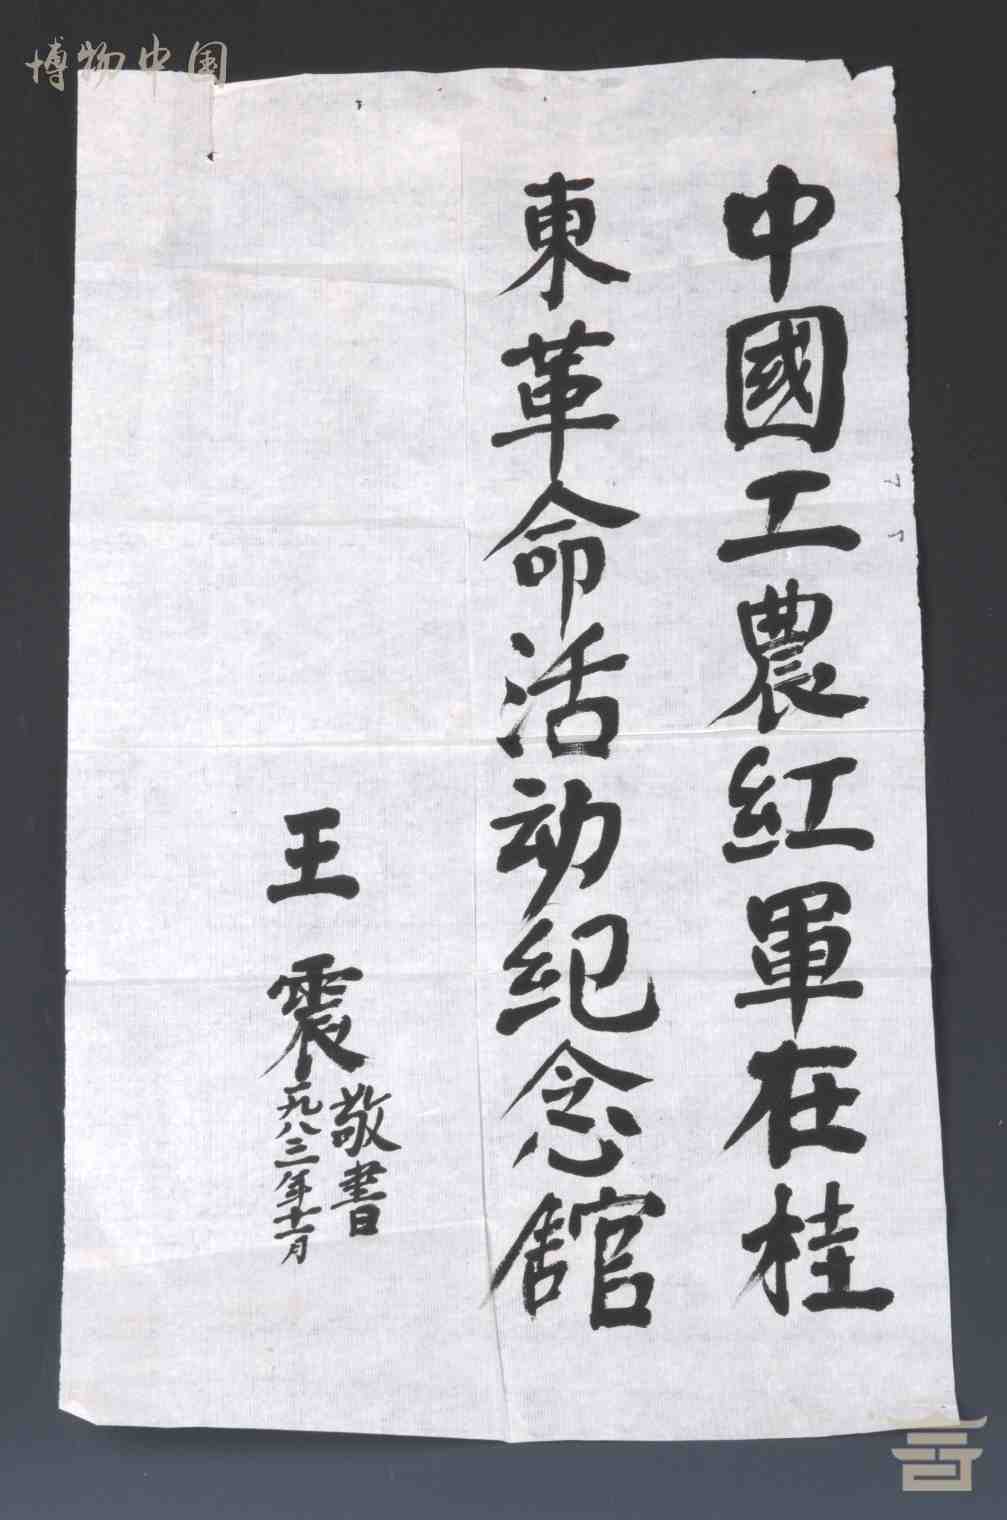 博物中国
中國工農紅軍在桂
東革命活动纪念舘
王震
敬書
一九八三年十一月